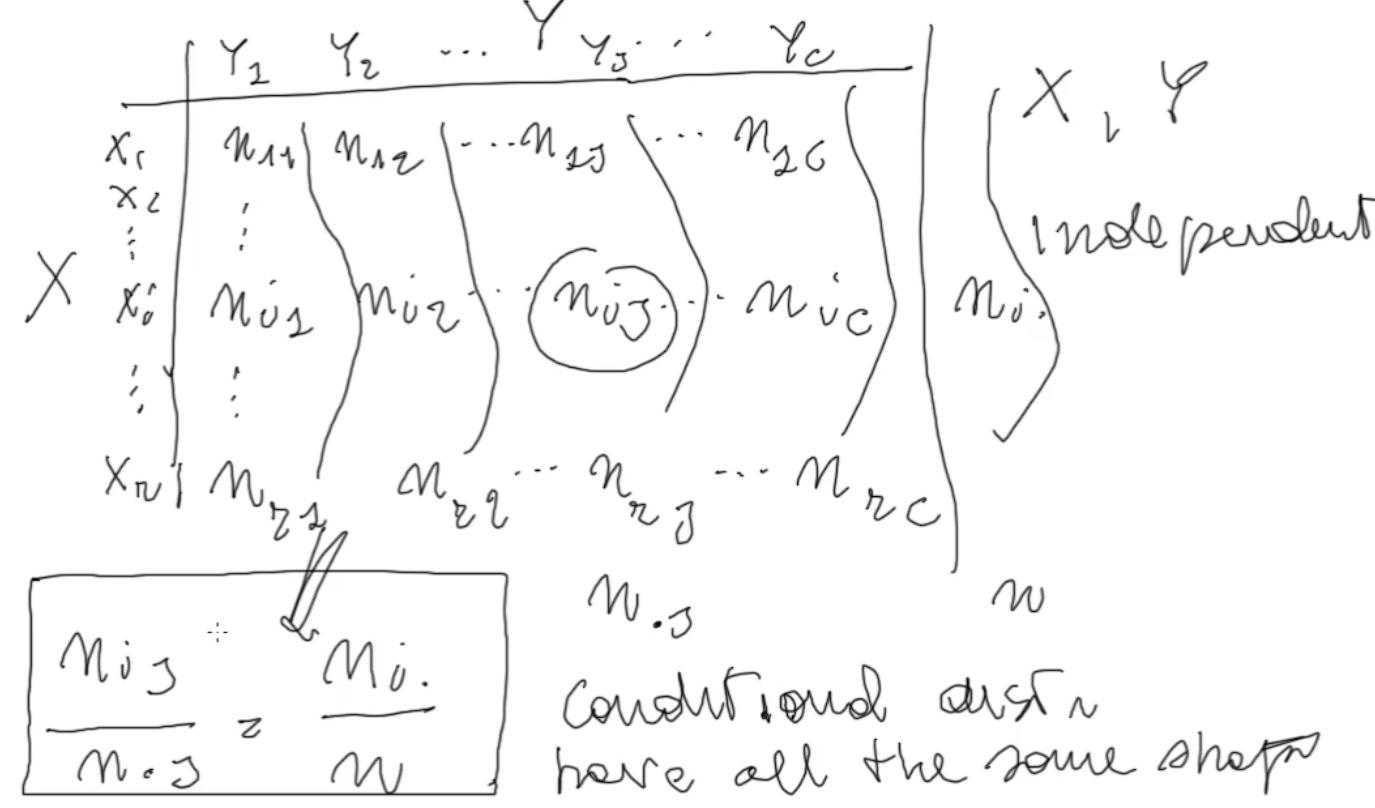 Y
Y1 Y2 ... YJ ... Yc
X1 n11 n12 ... n1J ... n1c
X2 ⋮
⋮
X Xi ni1 ni2 ... niJ ... nic ni.
⋮ ⋮
Xr nr1 nr2 ... nrJ ... nrc
n.J n
X, Y
independent
niJ / n.J = ni. / n
conditional distr
have all the same shape